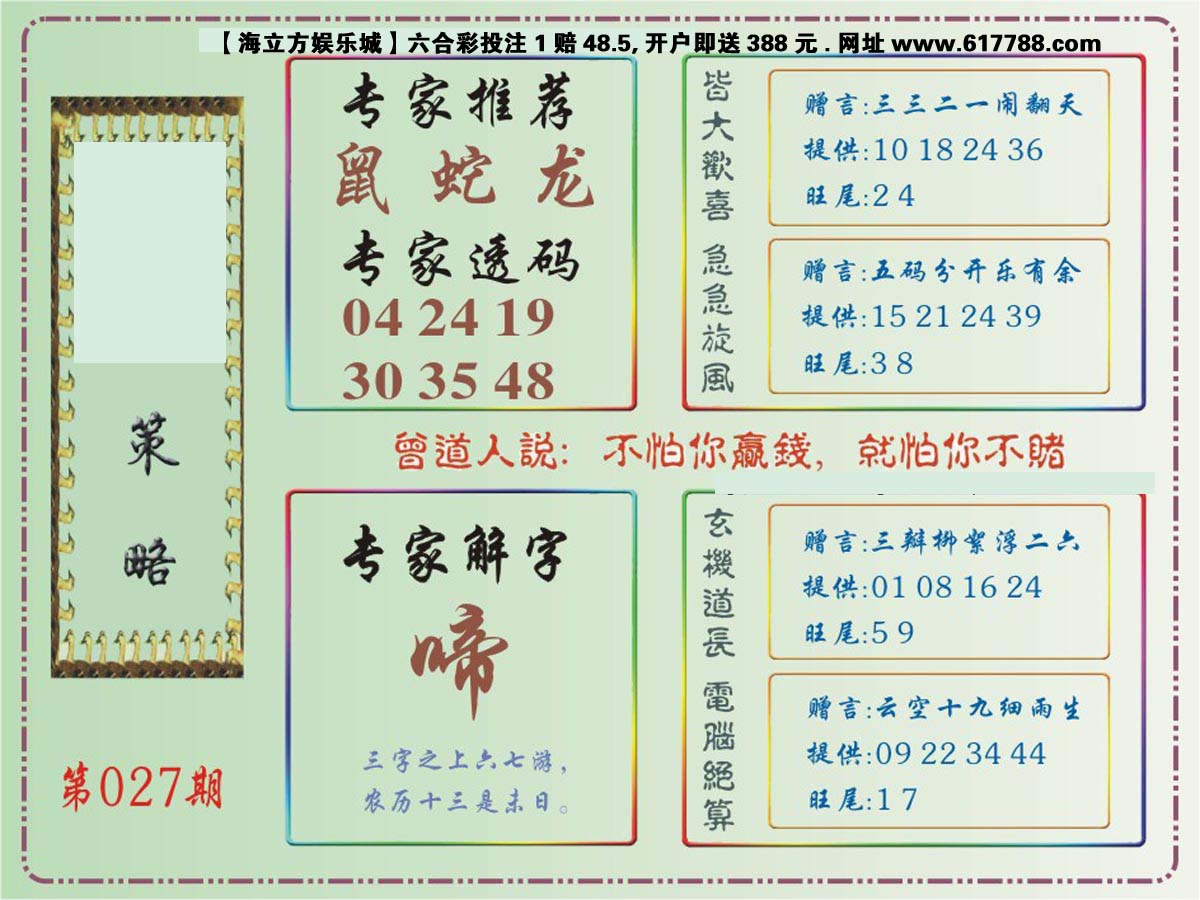 【海立方娱乐城】六合彩投注1赔48.5,开户即送388元.网址www.617788.com
策
略
第027期
专家推荐
鼠 蛇 龙
专家透码
04 24 19
30 35 48
皆大歡喜
赠言:三三二一闹翻天
提供:10 18 24 36
旺尾:2 4
急急旋風
赠言:五码分开乐有余
提供:15 21 24 39
旺尾:3 8
曾道人説: 不怕你贏錢, 就怕你不賭
专家解字
啼
三字之上六七游，
农历十三是未日。
玄機道長
赠言:三辩柳絮浮二六
提供:01 08 16 24
旺尾:5 9
電腦絕算
赠言:云空十九细雨生
提供:09 22 34 44
旺尾:1 7